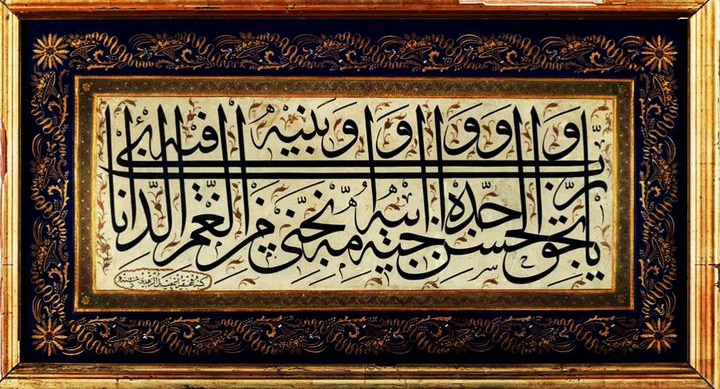 يا رب بحق الحسن واخيه وجده وابيه وامه وبنيه نجني من الغم الذي انا فيه